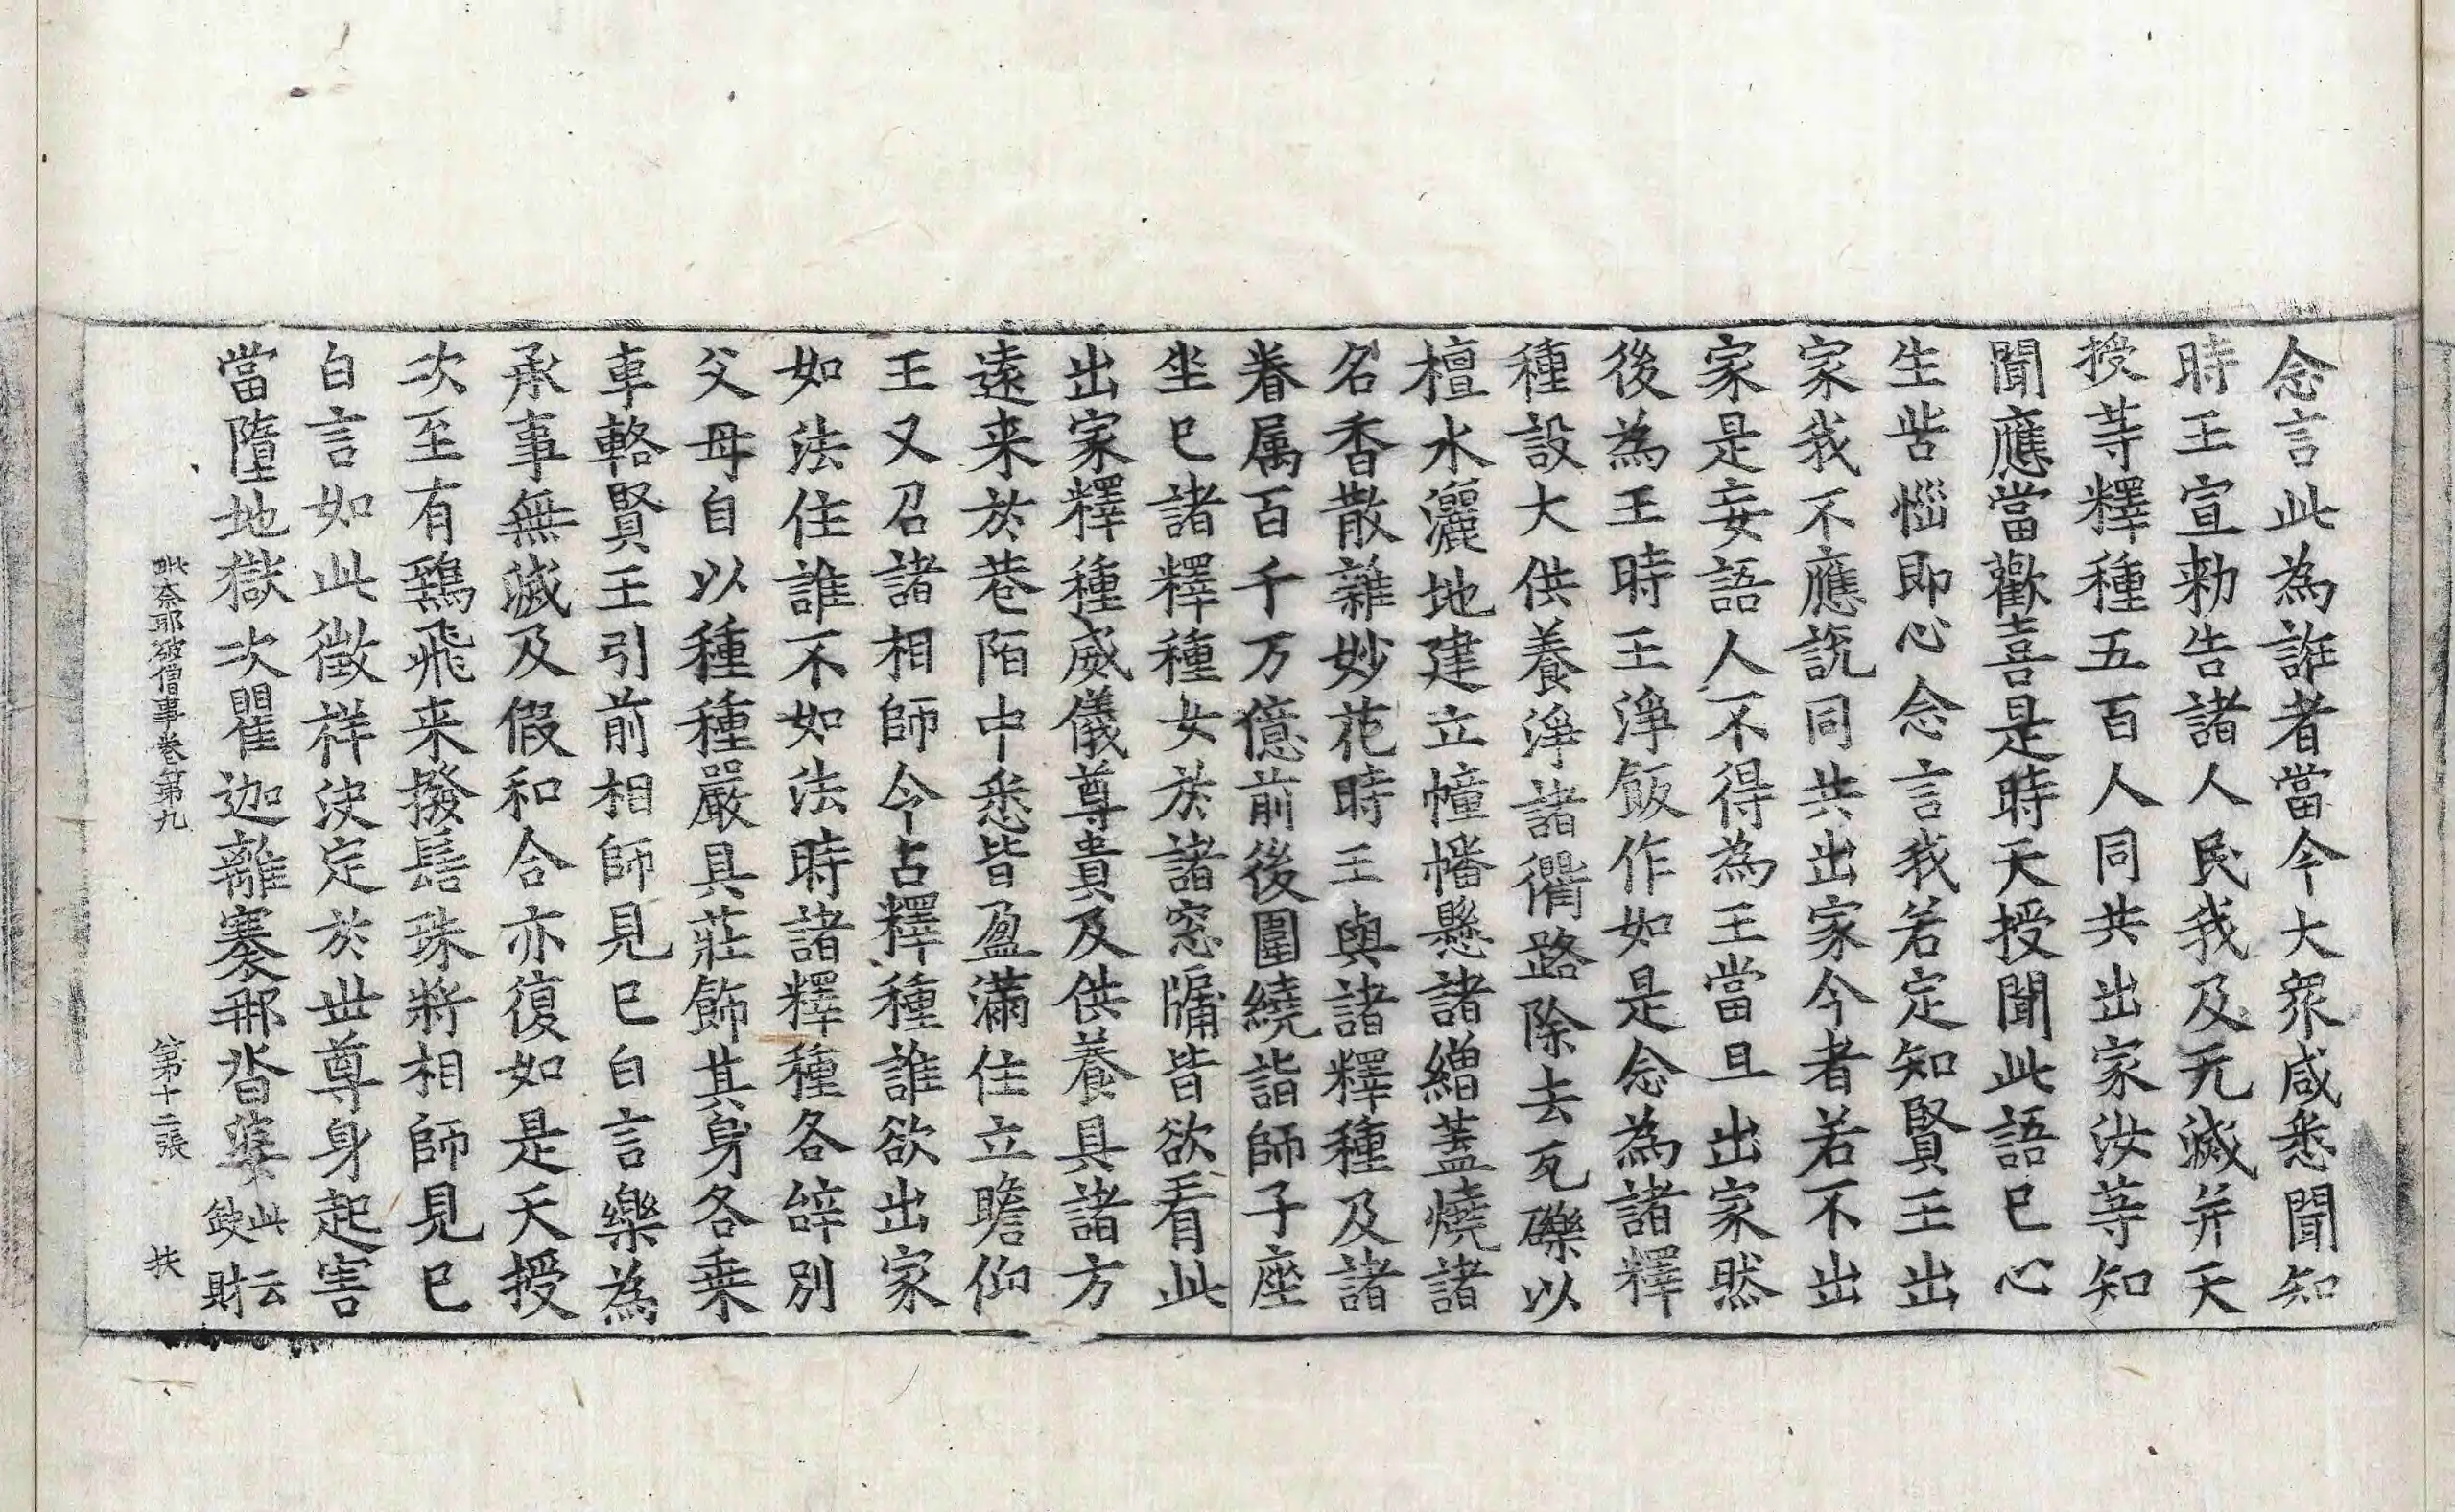 念言此為誑者當今大衆咸悉聞知
時王宣勑告諸人民我及无滅并天
授䓁釋種五百人同共出家汝䓁知
聞應當歡喜是時天授聞此語已心
生苦惱即心念言我若定知賢王出
家我不應說同共出家今者若不出
家是妄語人不得為王當且出家然
後為王時王淨飯作如是念為諸釋
種設大供養淨諸衢路除去瓦礫以
檀水灑地建立幢幡懸諸繒蓋燒諸
名香散雜妙花時王與諸釋種及諸
眷属百千万億前後圍繞詣師子座
坐已諸釋種女於諸窓牖皆欲看此
出家釋種威儀尊貴及供養具諸方
遠来於巷陌中悉皆盈滿住立瞻仰
王又召諸相師令占釋種誰欲出家
如法住誰不如法時諸釋種各辝別
父母自以種種嚴具莊飾其身各乗
車輅賢王引前相師見已白言樂為
承事無滅及假和合亦復如是天授
次至有鵄飛来撥髻珠將相師見已
白言如此徵祥决定於世尊身起害
當墮地獄次瞿迦離褰荼䣭沓婆此云䬹財
毗奈耶破僧事卷第九 第十二張 扶